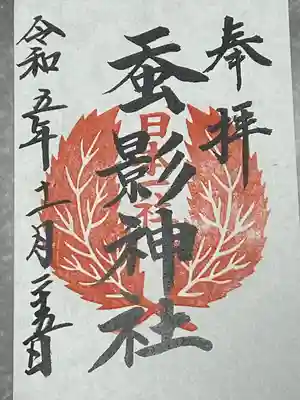 奉拝
日本一社
蚕影神社
令和五年十一月二十五日